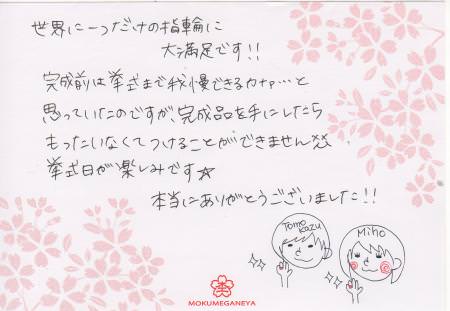 世界に一つだけの指輪に
大満足です!!
完成前は挙式まで我慢できるカナ…と
思っていたのですが、完成品を手にしたら
もったいなくてつけることができません
挙式日が楽しみです☆
本当にありがとうございました!!
Tomo
kazu
Miho
MOKUMEGANEYA